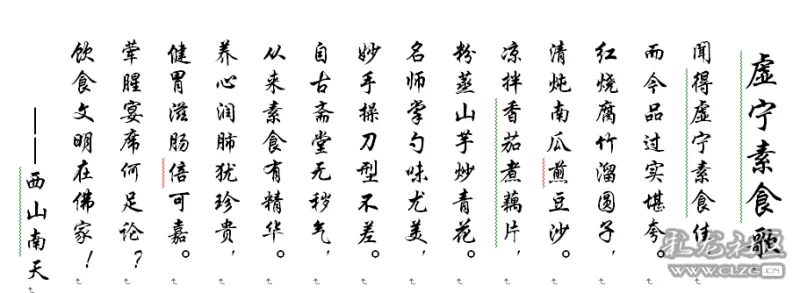 虚宁素食歌
闻得虚宁素食佳，
而今品过实堪夸。
红烧腐竹溜圆子，
清炖南瓜煎豆沙。
凉拌香茄煮藕片，
粉蒸山芋炒青花。
名师掌勺味尤美，
妙手操刀型不差。
自古斋堂无秽气，
从来素食有精华。
养心润肺犹珍贵，
健胃滋肠倍可嘉。
荤腥宴席何足论？
饮食文明在佛家！
——西山南天
WWW.CLZG.CN